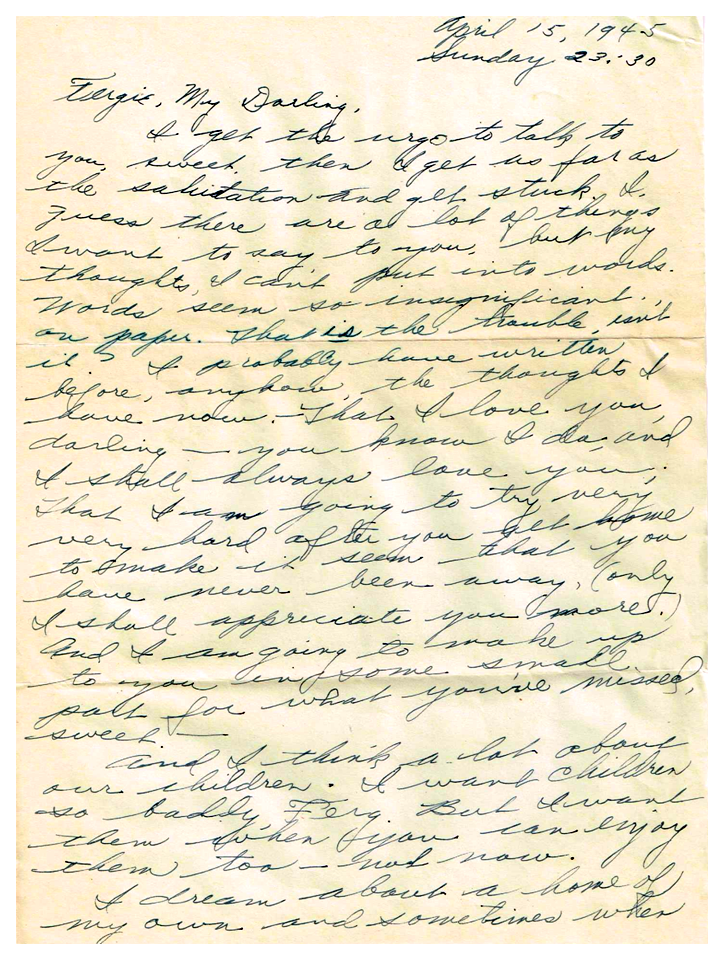 April 15, 1945
Sunday 23:30
Fergie, My Darling,
I get the urge to talk to
you, sweet, then I get as far as
the salutation and get stuck. I
guess there are a lot of things
I want to say to you, but my
thoughts, I can't put into words.
Words seem so insignificant
on paper. That is the trouble, isn't
it? I probably have written
before, anyhow, the thoughts I
have now. That I love you,
darling — you know I do, and
I shall always love you;
That I am going to try very
very hard after you get home
to make it seem that you
have never been away, (only
I shall appreciate you more.)
And I am going to make up
to you in some small
part for what you've missed,
sweet —
And I think a lot about
our children. I want children
so badly, Ferg. But I want
them when you can enjoy
them too — not now.
I dream about a home of
my own and sometimes when